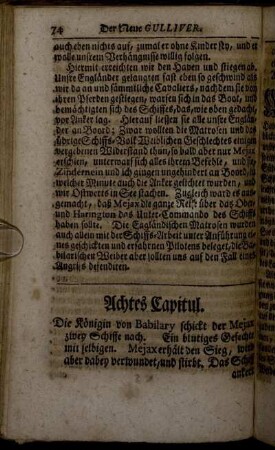 74 Der Neue GULLIVER.
auch eben nichts auf, zumal er ohne Kinder sey, und er
wolle unstem Verhängnisse willig folgen.
Hiermit erreichten wir den Haven und stiegen ab.
Unsre Engländer gelangten fast eben so geschwind als
wir da an und sämmtliche Cavaliers, nachdem sie von
ihren Pferden gestiegen, warfen sich in das Boot, und
bemächtigten sich des Schiffes, das, wie oben gedacht,
vor Anker lag. Hierauf liessen sie alle unsre Englän-
der an Boord; Zwar wollten die Matrosen und das
übrige Schiffs-Volk Weiblichen Geschlechtes einigen
vergebenen Widerstand thun; so bald aber nur Mejax
erschien, unterwarf sich alles ihren Befehle, und sie,
Zindernein und ich giengen ungehindert an Boord, in
welcher Minute auch die Anker gelichtet wurden, und
wir Ostwerts in See stachen. Zugleich ward es aus-
gemacht, daß Mejax die ganze Reise über das Ober-
und Harington des Unter-Commando des Schiffs
haben sollte. Die Engländischen Matrosen wurden
auch allein mit der Schiffs-Arbeit unter Anführung ei-
nes geschickten und erfahrnen Pilotens beleget, die Ba-
bilarischen Weiber aber sollten uns auf den Fall eines
Angrifs defendiren.
Achtes Capitul.
Die Königin von Babilary schickt der Mejax
zwey Schiffe nach. Ein blutiges Gefechte
mit selbigen. Mejax erhält den Sieg, wird
aber dabey verwundet, und stirbt. Das Schiff
ankert